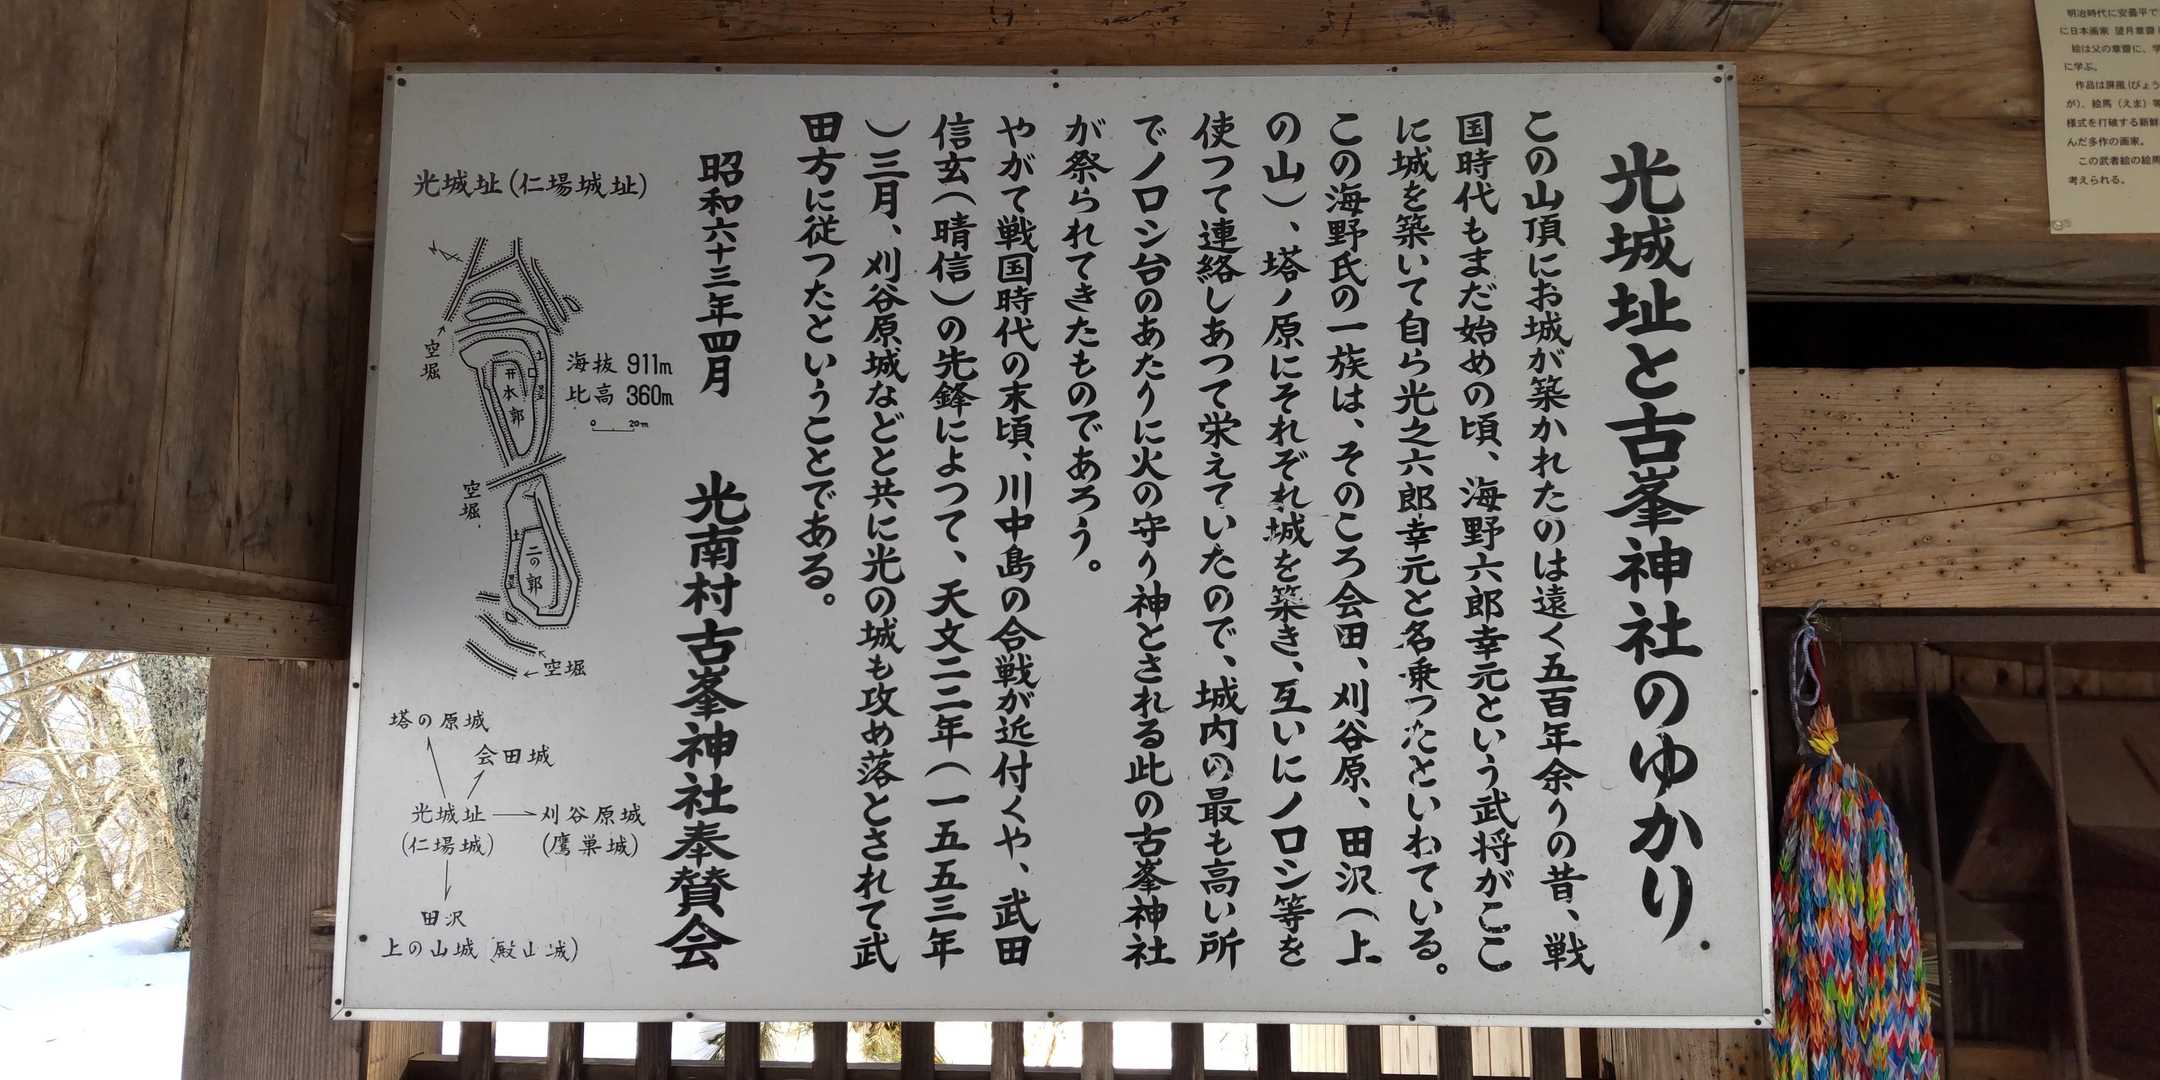 光城址と古峯神社のゆかり
この山頂にお城が築かれたのは遠く五百年余りの昔、戦
国時代もまだ始めの頃、海野六郎幸元という武将がここ
に城を築いて自ら光之六郎幸元と名乗つたといわている。
この海野氏の一族は、そのころ会田、刈谷原、田沢(上
の山)、塔ノ原にそれぞれ城を築き、互いにノロシ等を
使つて連絡しあつて栄えていたので、城内の最も高い所
でノロシ台のあたりに火の守り神とされる此の古峯神社
が祭られてきたものであろう。
やがて戦国時代の末頃、川中島の合戦が近付くや、武田
信玄(晴信)の先鋒によつて、天文二二年(一五五三年
)三月、刈谷原城などと共に光の城も攻め落とされて武
田方に従つたということである。
昭和六十三年四月 光南村古峯神社奉賛会
光城址(仁場城址)
空堀
土塁
井
本郭
海抜 911m
比高 360m
0 20m
空堀
土塁
二の郭
←空堀
塔の原城
会田城
光城址
(仁場城)
刈谷原城
(鷹巣城)
田沢
上の山城(殿山城)
明治時代に安曇平で
に日本画家 望月
絵は父の章齋に、学
に学ぶ。
作品は屏風(びょう
が)、絵馬(えま)等
様式を打破する新鮮
んだ多作の画家。
この武者絵の絵馬
考えられる。